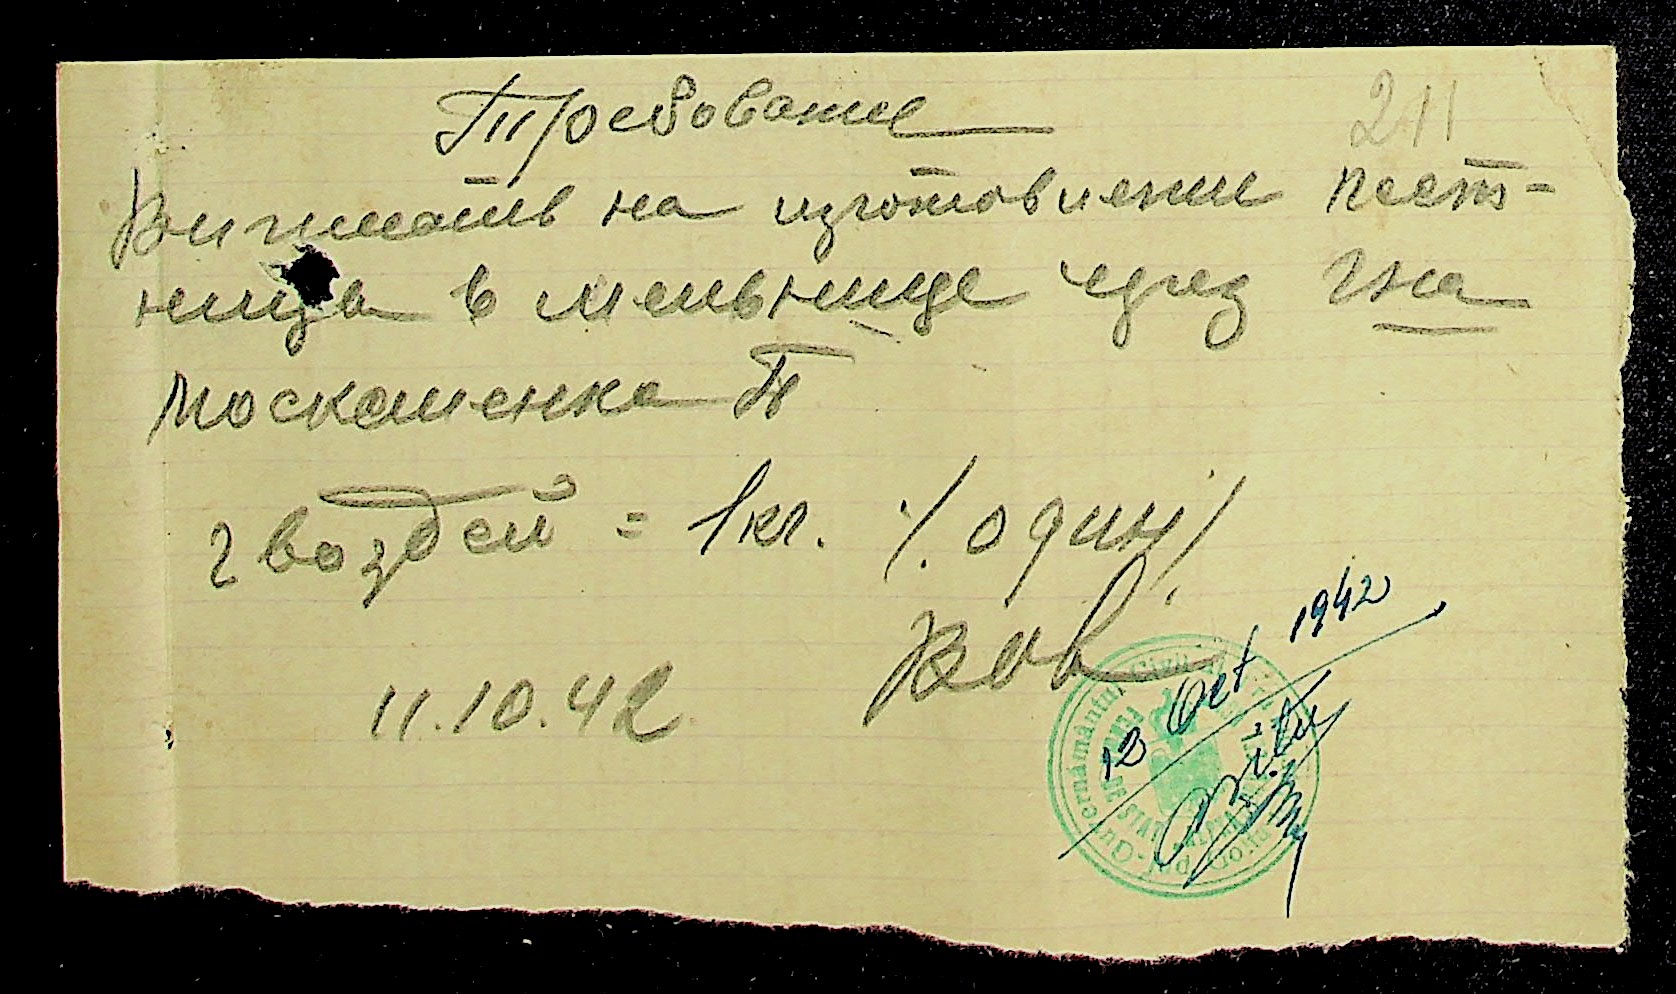 Требование
211
Выписать на изготовлении лест-
ница в мельнице чрез гна
Москаленка П
гвоздей = 1кг. /. один /.
11.10.42
12 Oct 1942